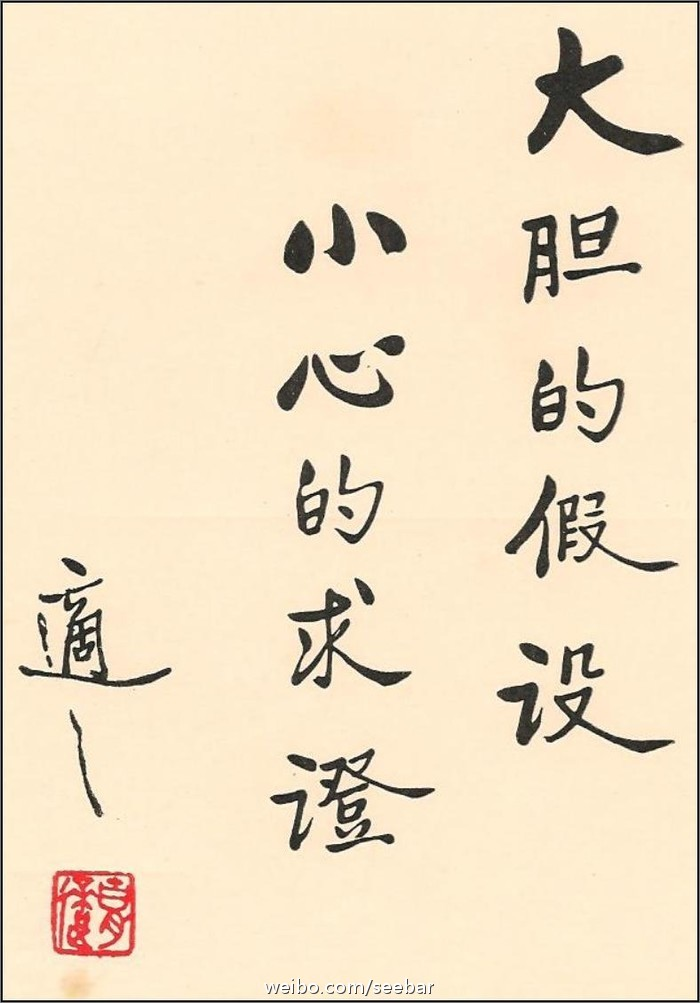 大胆的假设
小心的求證
適之
weibo.com/seebar